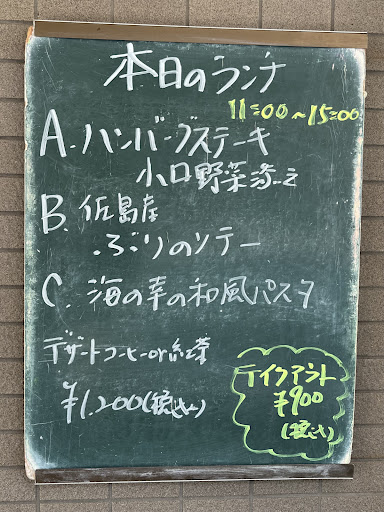 本日のランチ
11:00～15:00
A.ハンバーグステーキ
小口野菜添え
B.佐島産
ぶりのソテー
C.海の幸の和風パスタ
デザートコーヒーor紅茶
¥1,200(税込)
テイクアウト
¥900
(税込)